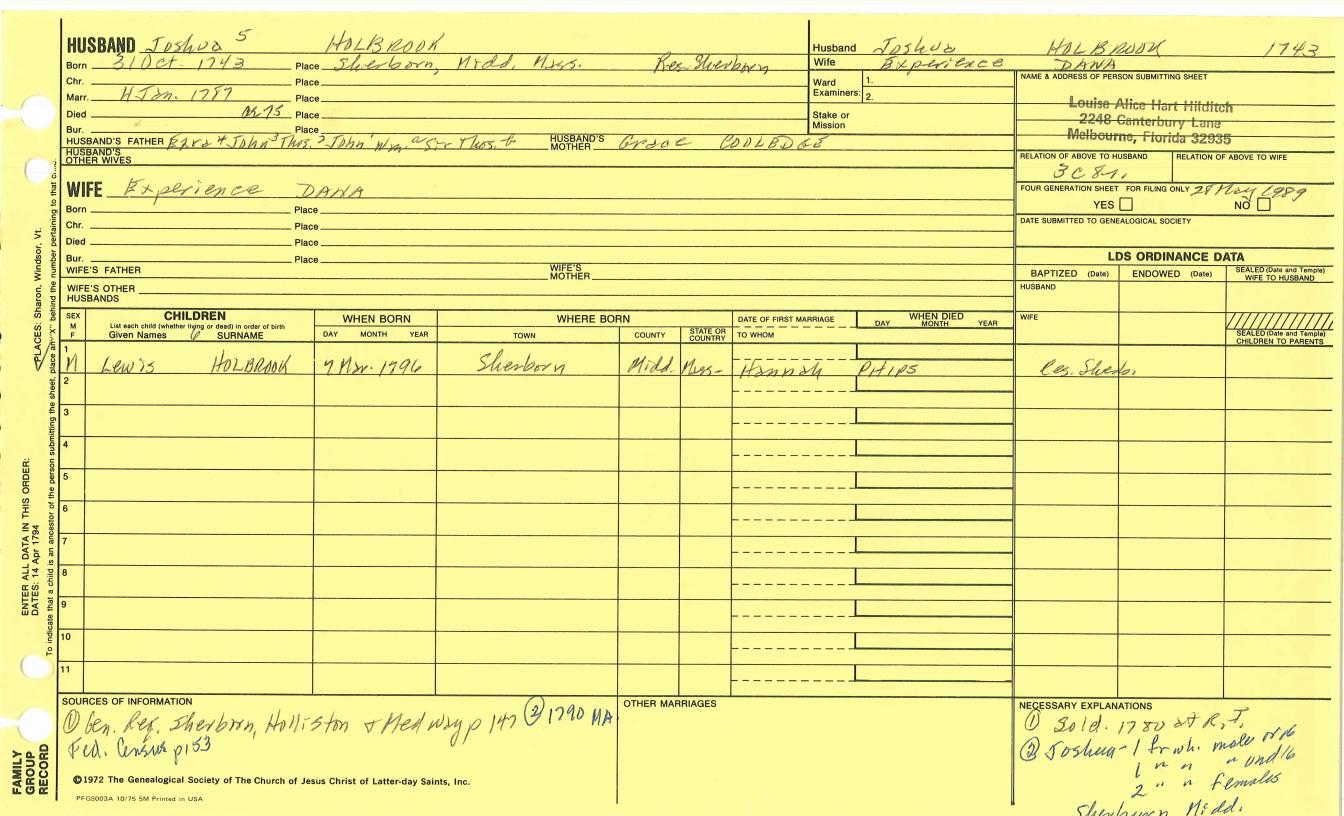 HUSBAND Joshua 5 HOLBROOK
Born 31 Oct. 1743 Place Sherborn, Midd, Mass. Res. Sherborn
Chr. Place
Marr. 4 Jan. 1787 Place
Died Place
Bur. Place
HUSBAND'S FATHER Ezra 4 John 3 Thos. 2 John 1 Wm. a Sir Thos. b HUSBAND'S MOTHER Grace COOLEDGE
HUSBAND'S OTHER WIVES
Husband Joshua HOLBROOK 1743
Wife Experience DANA
Ward Examiners: 1.
2.
Stake or Mission
NAME & ADDRESS OF PERSON SUBMITTING SHEET
Louise Alice Hart Hilditch
2248 Canterbury Lane
Melbourne, Florida 32935
RELATION OF ABOVE TO HUSBAND RELATION OF ABOVE TO WIFE
FOUR GENERATION SHEET FOR FILING ONLY 28 May 1989
YES NO
DATE SUBMITTED TO GENEALOGICAL SOCIETY
WIFE Experience DANA
Born Place
Chr. Place
Died Place
Bur. Place
WIFE'S FATHER WIFE'S MOTHER
WIFE'S OTHER HUSBANDS
LDS ORDINANCE DATA
BAPTIZED (Date) ENDOWED (Date) SEALED (Date and Temple) WIFE TO HUSBAND
HUSBAND
WIFE
SEALED (Date and Temple) CHILDREN TO PARENTS
SEX M F
CHILDREN
List each child (whether living or dead) in order of birth
Given Names 6 SURNAME
WHEN BORN
DAY MONTH YEAR
WHERE BORN
TOWN COUNTY STATE OR COUNTRY
DATE OF FIRST MARRIAGE
TO WHOM
WHEN DIED
DAY MONTH YEAR
1
M Lewis HOLBROOK 7 Mar. 1796 Sherborn Midd. Mass- Hannah PHIPS Res. Sherb.
2
3
4
5
6
7
8
9
10
11
SOURCES OF INFORMATION
① Gen. Reg. Sherborn, Holliston & Medway p 147 ② 1790 MA
Fed. Census p153
OTHER MARRIAGES
NECESSARY EXPLANATIONS
① Sold. 1780 at R.I.
② Joshua - 1 fr wh. male or 16
1 " " " und 16
2 " " females
Sherburn Midd.
©1972 The Genealogical Society of The Church of Jesus Christ of Latter-day Saints, Inc.
PFGS003A 10/75 5M Printed in USA
FAMILY GROUP RECORD
ENTER ALL DATA IN THIS ORDER:
DATES: 14 Apr 1794
PLACES: Sharon, Windsor, Vt.
To indicate that a child is an ancestor of the person submitting the sheet, place an "X" behind the number pertaining to that